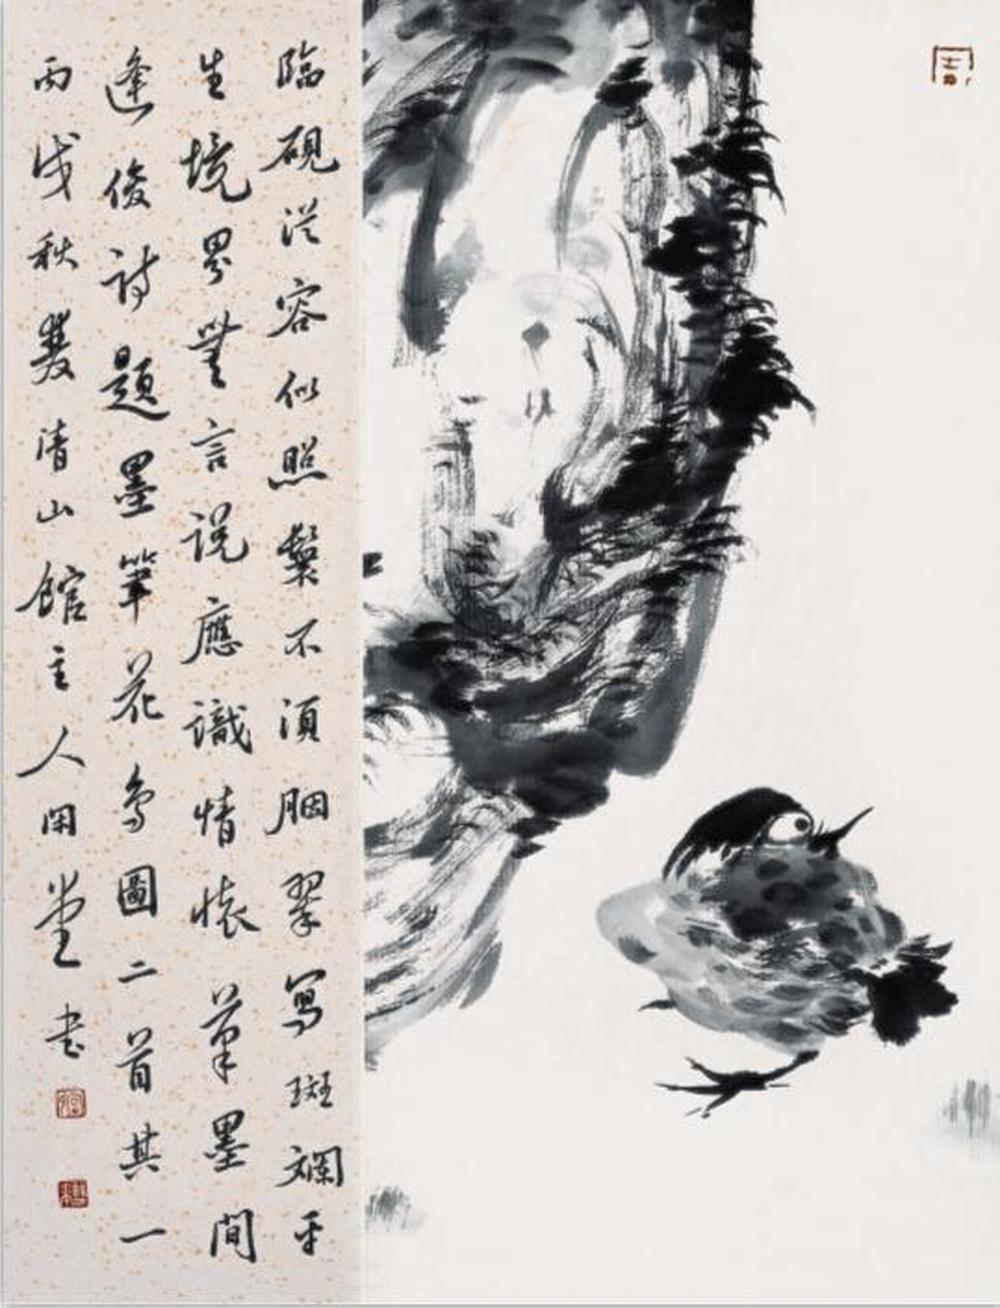 臨硯從容似照鬢不須胭翠寫斑斕平
生境界無言說應識情懷筆墨間
逢俊詩題墨筆花鳥圖二首其一
丙戌秋雙清山館主人閑堂書